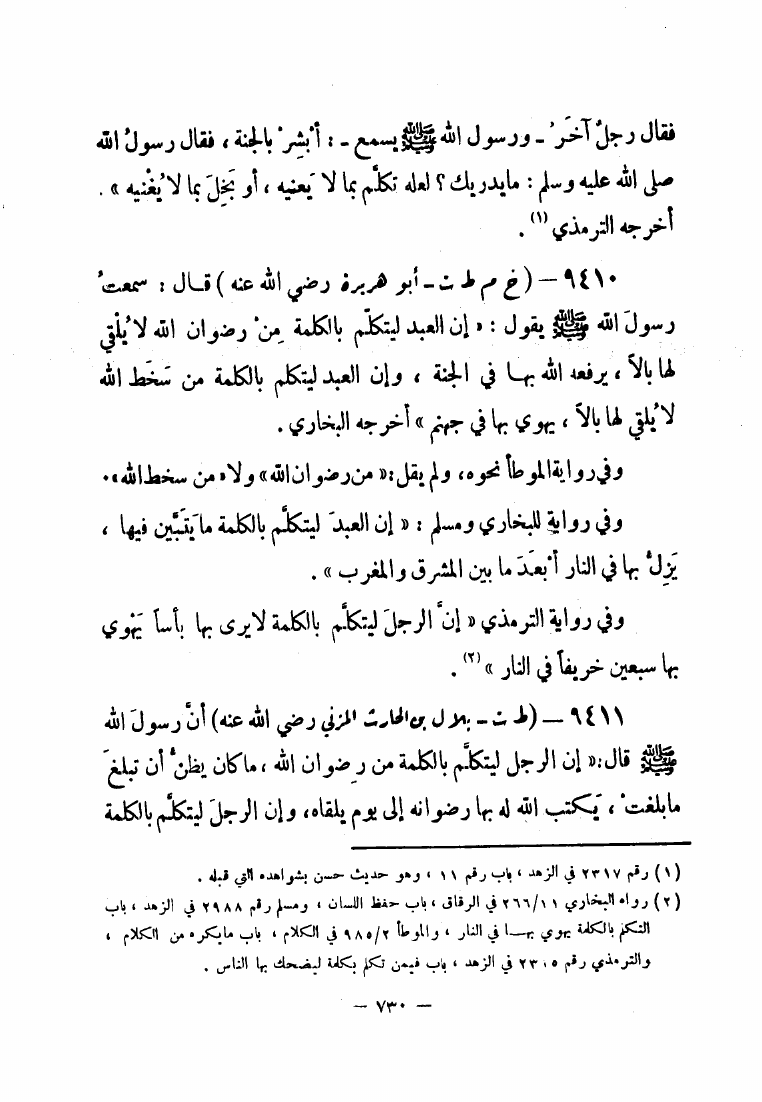 فقال رجلٌ آخَرُ ـ ورسول الله ﷺ يسمع ـ : أبْشِرْ بالجنة ، فقال رسولُ الله
صلى الله عليه وسلم : مايدريك ؟ لعله تكلَّم بما لا يَعنيه ، أو بَخِلَ بما لا يُغْنيه » .
أخرجه الترمذي (١) .
٩٤١٠ – ( خ م ط ت ـ أبو هريرة رضي الله عنه ) قال : سمعتُ
رسولَ الله ﷺ يقول : « إن العبد ليتكلّم بالكلمة مِنْ رضوان الله لا يُلْقي
لها بالاً ، يرفعه الله بها في الجنة ، وإن العبد ليتكلم بالكلمة من سَخَط الله
لا يُلقي لها بالاً ، يهوي بها في جهنم » أخرجه البخاري .
وفي رواية الموطأ نحوه، ولم يقل :« من رضوان الله» ولا« من سخط الله».
وفي روايةٍ للبخاري ومسلم : « إن العبدَ ليتكلَّم بالكلمة ما يَتَبَّين فيها ،
يَزِلُّ بها في النار أبْعَدَ ما بين المشرق والمغرب » .
وفي رواية الترمذي « إنَّ الرجلَ ليتكلَّم بالكلمة لايرى بها بأساً يَهْوي
بها سبعين خريفاً في النار » (٢) .
٩٤١١ – (ط ت ـ بلال بن الحارث المزني رضي الله عنه) أنَّ رسولَ الله
ﷺ قال:« إن الرجل ليتكلَّم بالكلمة من رِضوان الله ، ماكان يظنُّ أن تبلغَ
مابلغتْ ، يَكتب الله له بها رضوانه إلى يوم يلقاه، وإن الرجلَ ليتكلَّم بالكلمة
(١) رقم ٢٣١٧ في الزهد ، باب رقم ١١ ، وهو حديث حسن بشواهده التي قبله .
(٢) رواه البخاري ٢٦٦/١١ في الرقاق ، باب حفظ اللسان ، ومسلم رقم ٢٩٨٨ في الزهد ، باب
التكلم بالكلمة يهوي بها في النار ، والموطأ ٩٨٥/٢ في الكلام ، باب مايكره من الكلام ،
والترمذي رقم ٢٣٠٥ في الزهد ، باب فيمن تكلم بكلمة ليضحك بها الناس .
– ٧٣٠ –